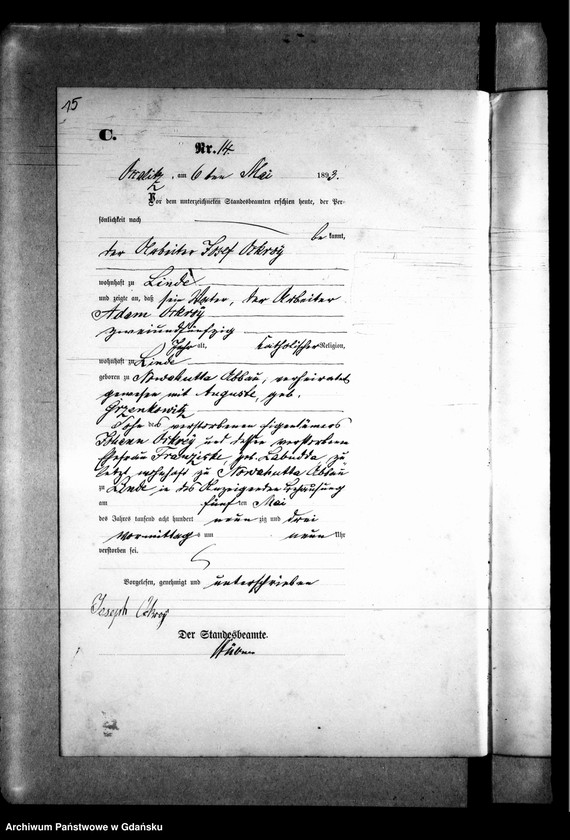 15
C.
Nr. 14.
am 6 ten Mai 1893.
Vor dem unterzeichneten Standesbeamten erschien heute, der Per-
sönlichkeit nach
be kannt,
der Arbeiter Josef Ockroy
wohnhaft zu Linde
und zeigte an, daß sein Vater, der Arbeiter
Adam Ockroy
zweiundfünfzig
Jahr alt, katholischer Religion,
wohnhaft zu Linde
geboren zu Nowahutta Abbau, verheiratet
gewesen mit Auguste, geb.
Grzenkowitz
Sohn des verstorbenen Eigentümers
Johann Ockroy und dessen verstorbenen
Ehefrau Franziska geb. Labudda zu
letzt wohnhaft zu Nowahutta Abbau
zu Linde in des Anzeigenden Behausung
am fünf ten Mai
des Jahres tausend acht hundert neun zig und drei
vormittags um neun Uhr
verstorben sei.
Vorgelesen, genehmigt und unterschrieben
Joseph Ockroy
Der Standesbeamte.
Archiwum Państwowe w Gdańsku